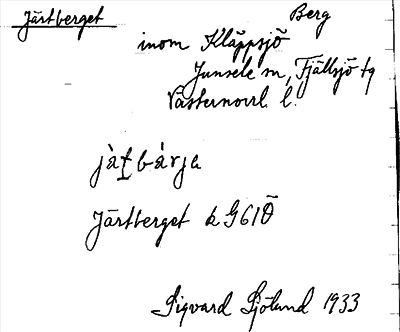 Järtberget
Berg
inom Kläppsjö
Junsele sn, Fjällsjö tg
Västernorrl. l.
Järtberget k G61Ö
Sigvard Sjölund 1933